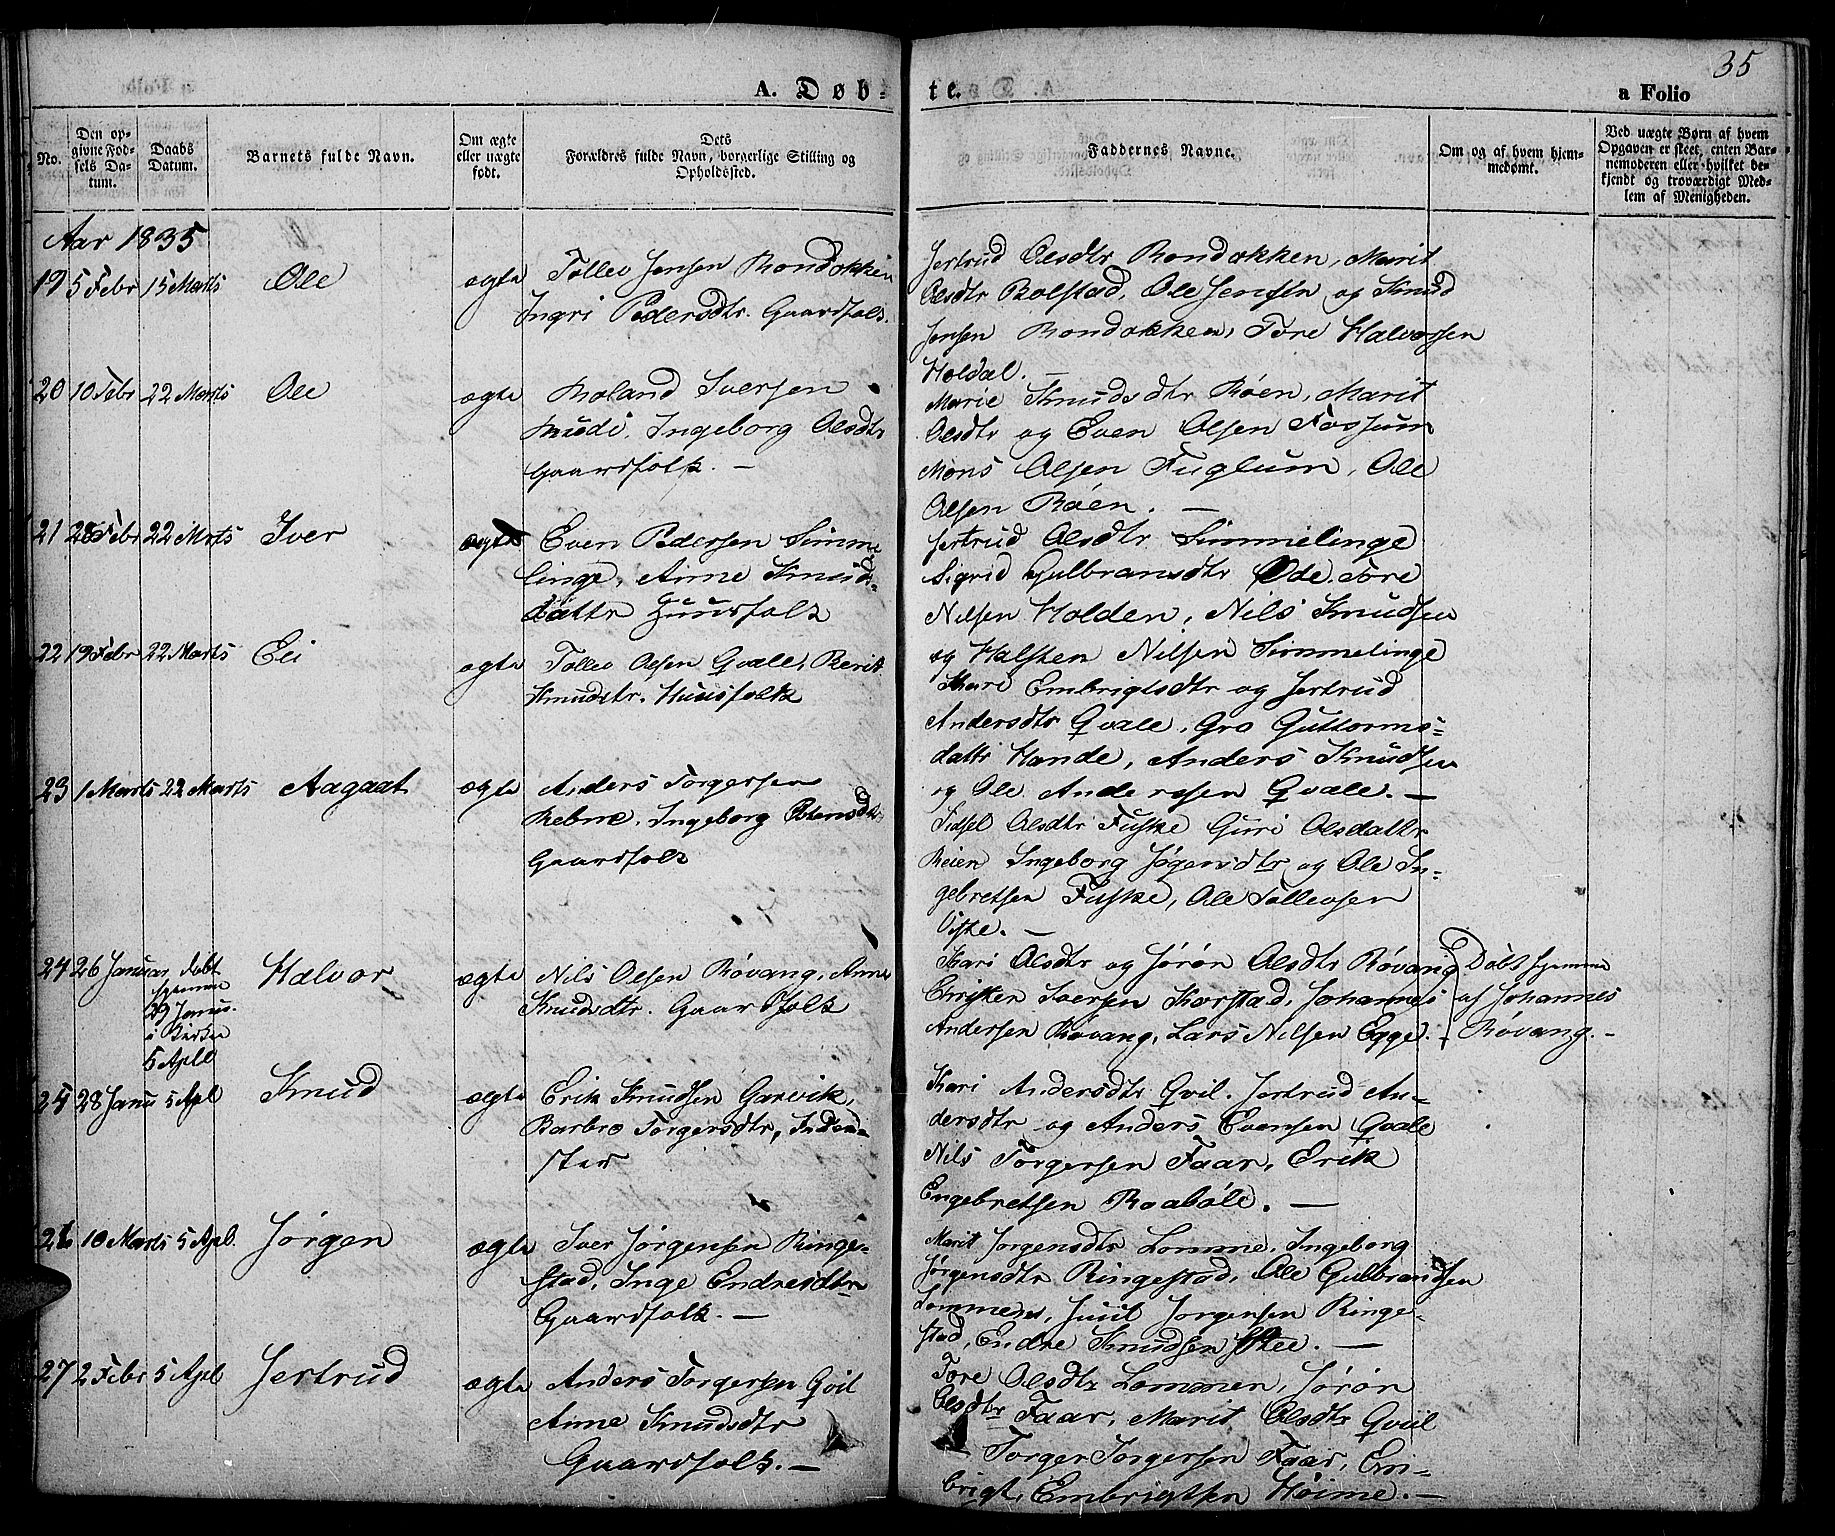 35
A. Døb-
te.
a Folio
No.
Den opgivne Fødsels Datum.
Daabs Datum.
Barnets fulde Navn.
Om ægte eller uægte født.
Dets Forældres fulde Navn, borgerlige Stilling og Opholdssted.
Faddernes Navne.
Om og af hvem hjemmedøbt.
Ved uægte Børn af hvem Opgaven er skeet, enten Barnemoderen eller hvilket bekjendt og troværdigt Medlem af Menigheden.
Aar 1835
19 5 Febr 15 Marts Ole ægte Tollev Jensen Rondokken
Ingri Pedersdtr. Gaardfolk.
Jertrud Olsdtr Rondokken, Marit
Olsdtr Bolstad, Ole Jensen og Knud
Jensen Rondokken, Tore Halvorsen
Holdal. —
20 10 Febr 22 Marts Ole ægte Roland Iversen
Ingeborg Olsdtr
Gaardfolk. —
Marie Knudsdtr Røen, Marit
Olsdtr og Even Olsen Fossum
Mons Olsen Fuglum, Ole
Olsen Røen. —
21 Febr 22 Marts Iver ægte Even Pedersen Simme
linge, Anne Knuds-
datter Huusfolk
Jertrud Olsdtr Simmelinge
Sigrid Gulbransdtr Øde, Tore
Nilsen Holden, Nils Knudsen
og Halsten Nilsen Simmelinge
22 19 Febr 22 Marts Eli ægte Tollev Olsen Qvale, Berit
Knudsdtr. Huusfolk
Kari Embrigtsdtr og Jertrud
Andersdtr Qvale, Gro Guttorms-
datter Hande, Anders Knudsen
og Ole Andersen Qvale. —
23 1 Marts 22 Marts Aagaat ægte Anders Torgersen
Rebne, Ingeborg
Gaardfolk
Sidsel Olsdtr Fuske Guri Olsdattr
Reien Ingeborg Jøgensdtr og Ole In-
gebretsen Fuske, Ole Tollevsen
Viste. —
24 26 Januar, døbt
hjemme
29 Janu.
i Kirken
5 Apll
Halvor ægte Nils Olsen Røvang, Anne
Knudsdtr. Gaardfolk
Kari Olsdtr og Jørøn Olsdtr Røvang
Christen Iversen Karstad, Johannes
Andersen Røvang, Lars Nilsen Egge. -
Døbt hjemme
af Johannes
Røvang. -
25 28 Janu 5 Apl Knud ægte Erik Knudsen Garvik,
Barbro Torgersdtr, Inder-
ster
Kari Andersdtr Qvil. Jertrud An-
dersdtr og Anders Evensen Qvale
Nils Torgersen Faar, Erik
Engebretsen Roabøle. —
26 10 Marts 5 Apl. Jørgen ægte Iver Jørgensen Ringe-
stad, Inge Endresdtr
Gaardfolk. —
Marit Jorgensdtr Lomme, Ingeborg
Jørgensdtr Ringestad, Ole Gulbrandsen
Lommen, Juul Jorgensen Ringe-
stad, Endre Knudsen —
27 2 Febr 5 Apl Jertrud ægte Anders Torgersen Qvil
Anne Knudsdtr
Gaardfolk. —
Tore Olsdtr Lommen, Jørøn
Olsdtr Faar, Marit Olsdtr Qviil
Torger Torgersen Faar, Em-
brigt Embrigtsen Høime. —